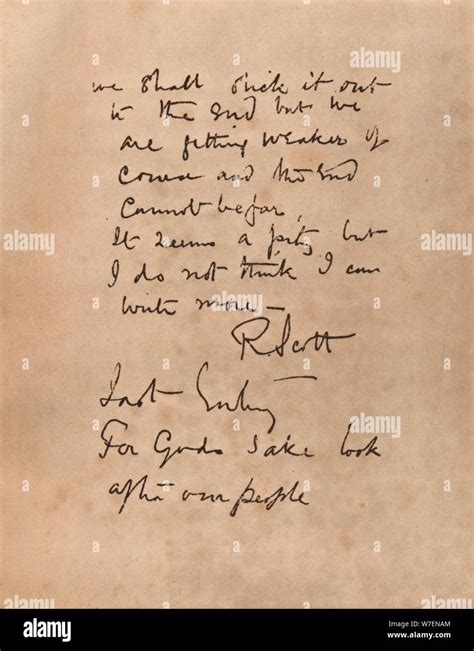 we shall stick it out
to the end but we
are getting weaker of
course and the end
cannot be far,
It seems a pity but
I do not think I can
write more —
R. Scott
Last Entry
For Gods sake look
after our people
alamy
alamy
alamy
Image ID: W7ENAM
www.alamy.com